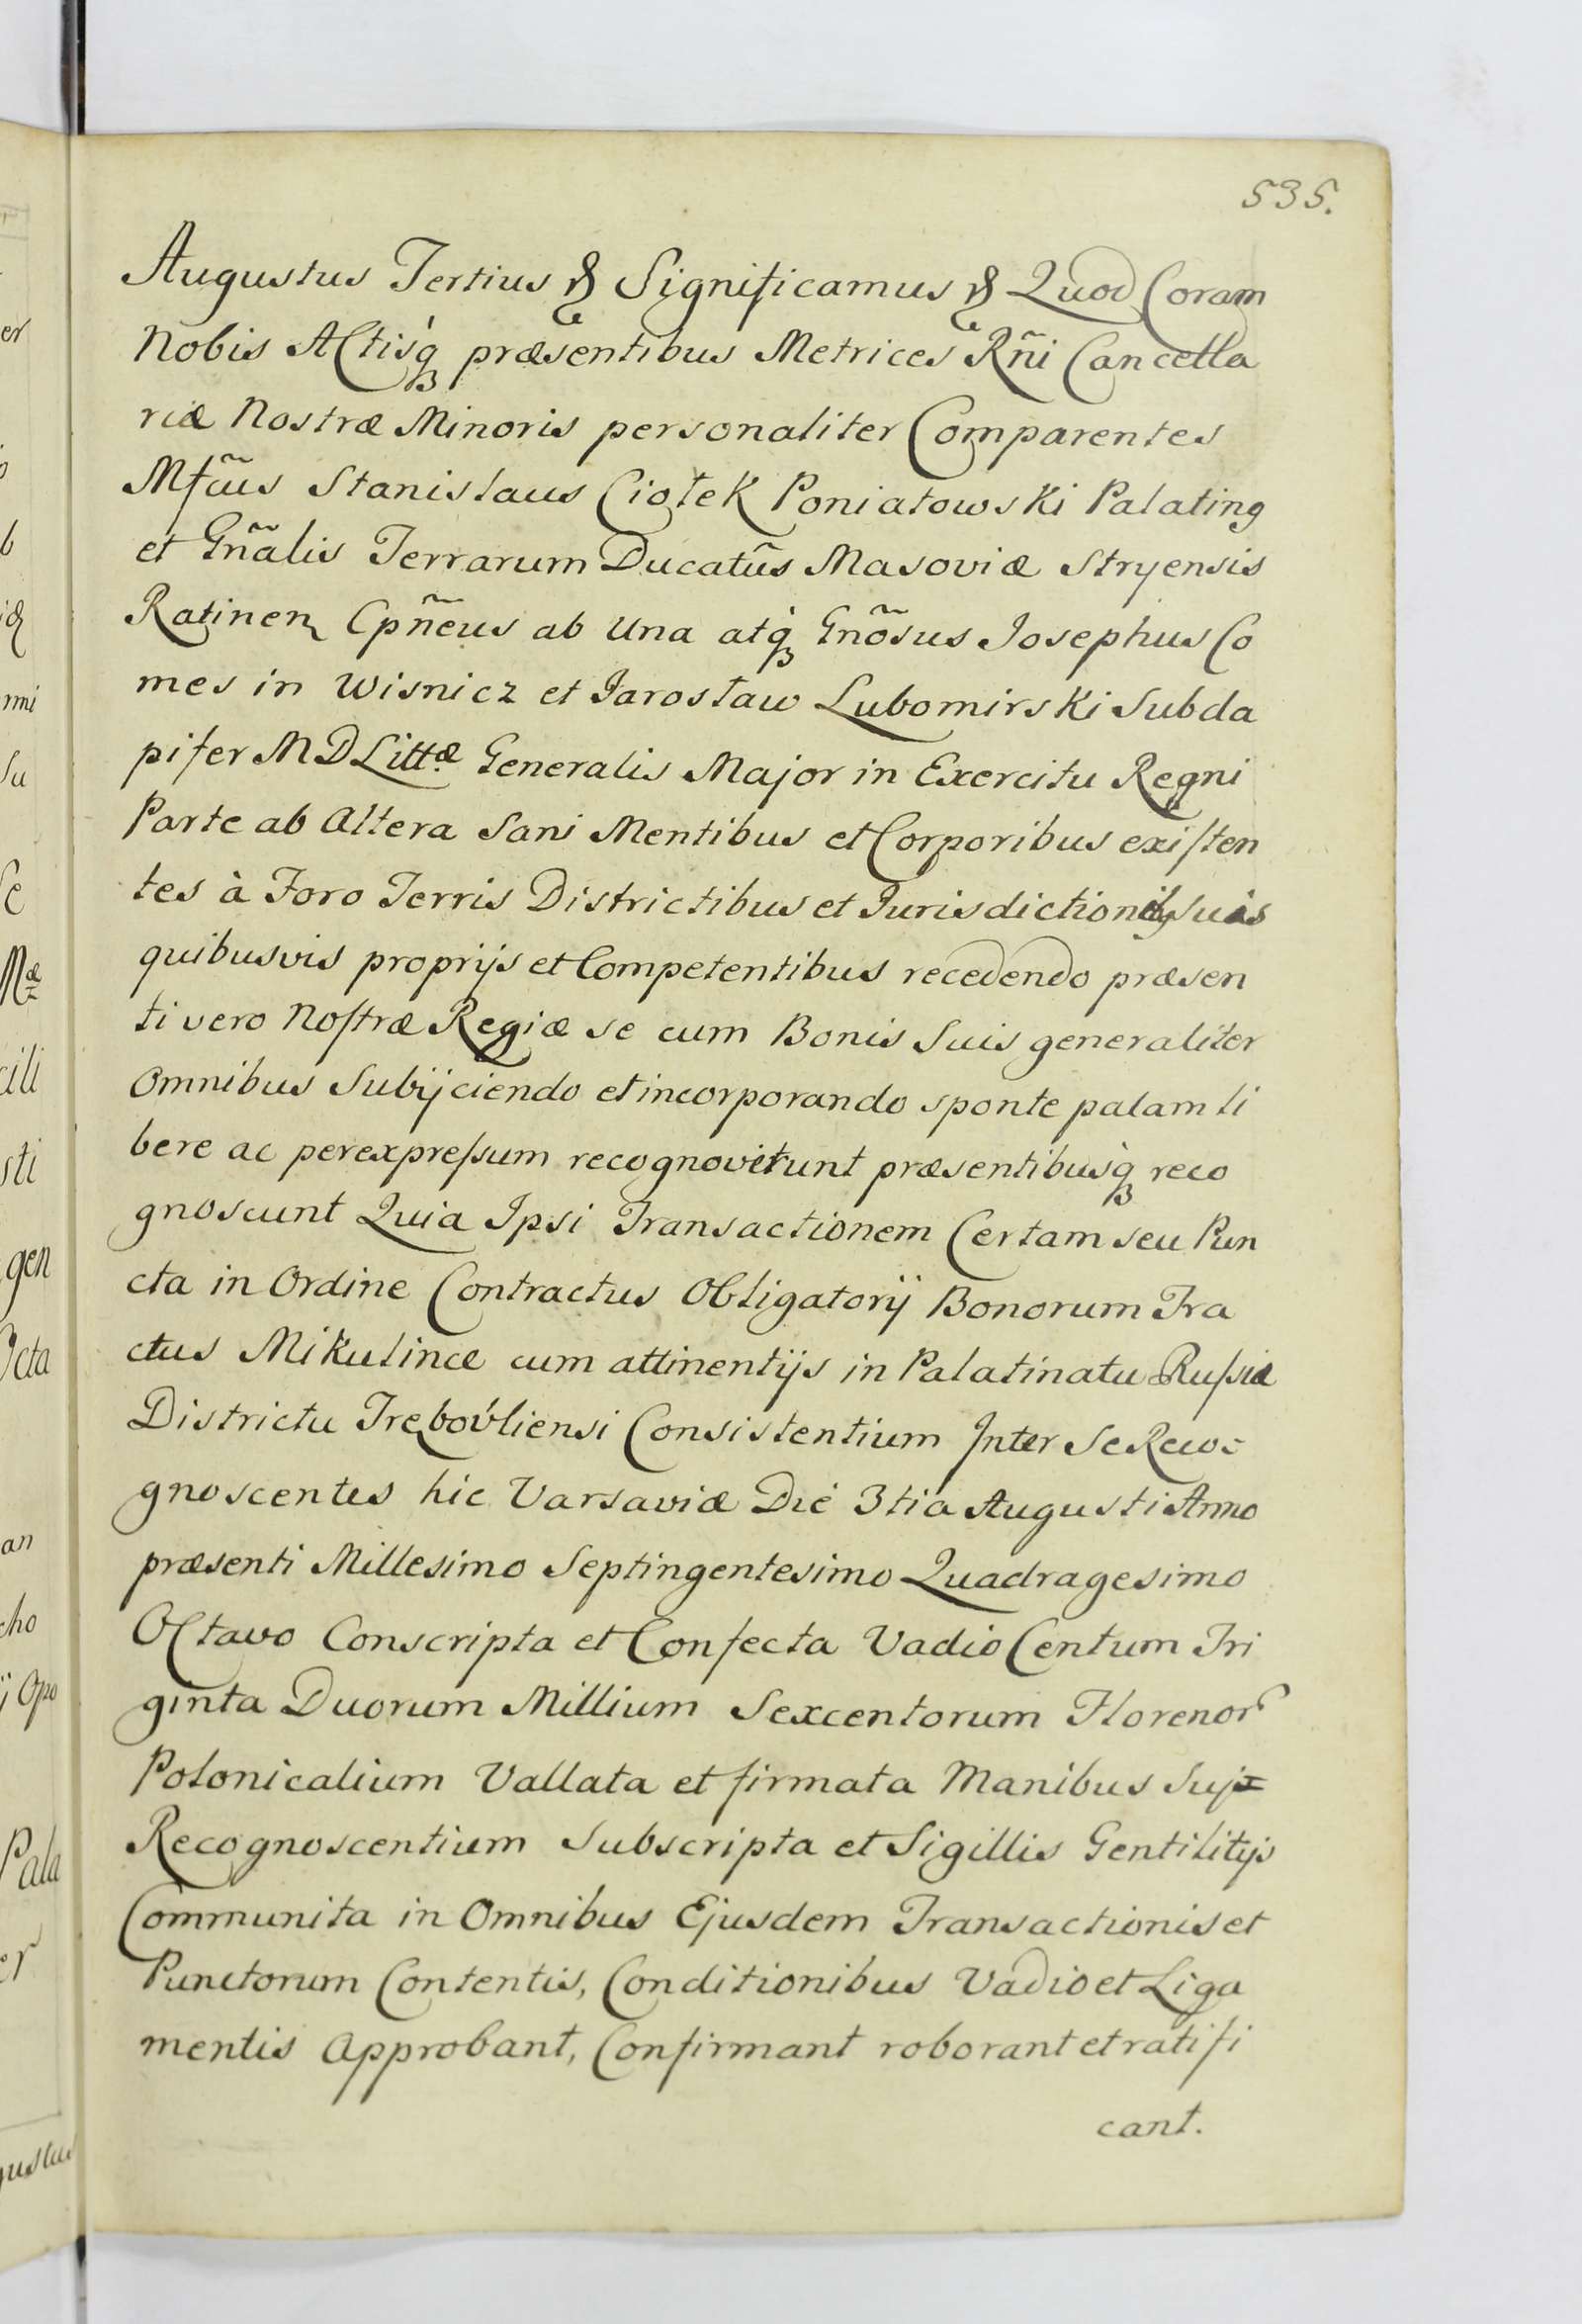 535.
Augustus Tertius & Significamus & Quod Coram
Nobis Actisq́ præsentibus Metrices Rñi Cancella
riæ Nostræ Minoris personaliter Comparentes
Mfcũs Stanislaus Ciołek Poniatowski Palatinꝯ
et Gñalis Terrarum Ducatũs Masoviæ Stryensis
Ratinen Cpñeus ab Una atq́ Gnõsus Josephus Co
mes in Wisnicz et Jarosław Lubomirski Subda
pifer MDLittæ Generalis Major in Exercitu Regni
Parte ab Altera Sani Mentibus et Corporibus existen
tes à Foro Terris Districtibus et Jurisdictionibꝯ suis
quibusvis proprijs et Competentibus recedendo præsen
ti vero Nostræ Regiæ se cum Bonis Suis generaliter
Omnibus Subijciendo et incorporando sponte palam li
bere ac per expressum recognoverunt præsentibusq́ reco
gnoscunt Quia Ipsi Transactionem Certam seu Pun
cta in Ordine Contractus Obligatorij Bonorum Tra
ctus Mikulincæ cum attinentijs in Palatinatu Russiæ
Districtu Trebovliensi Consistentium Inter Se Reco-
gnoscentes hic Varsaviæ Die 3tia Augusti Anno
præsenti Millesimo Septingentesimo Quadragesimo
Octavo Conscripta et Confecta Vadio Centum Tri
ginta Duorum Millium Sexcentorum Florenor
Polonicalium Vallata et firmata Manibus
Recognoscentium Subscripta et Sigillis Gentilitijs
Communita in Omnibus Ejusdem Transactionis et
Punctorum Contentis, Conditionibus Vadio et Liga
mentis Approbant, Confirmant roborant et ratifi
cant.
er
b
mi
su
cili
sti
gen
cta
an
cho
ij Opo
Pala
er
gustus